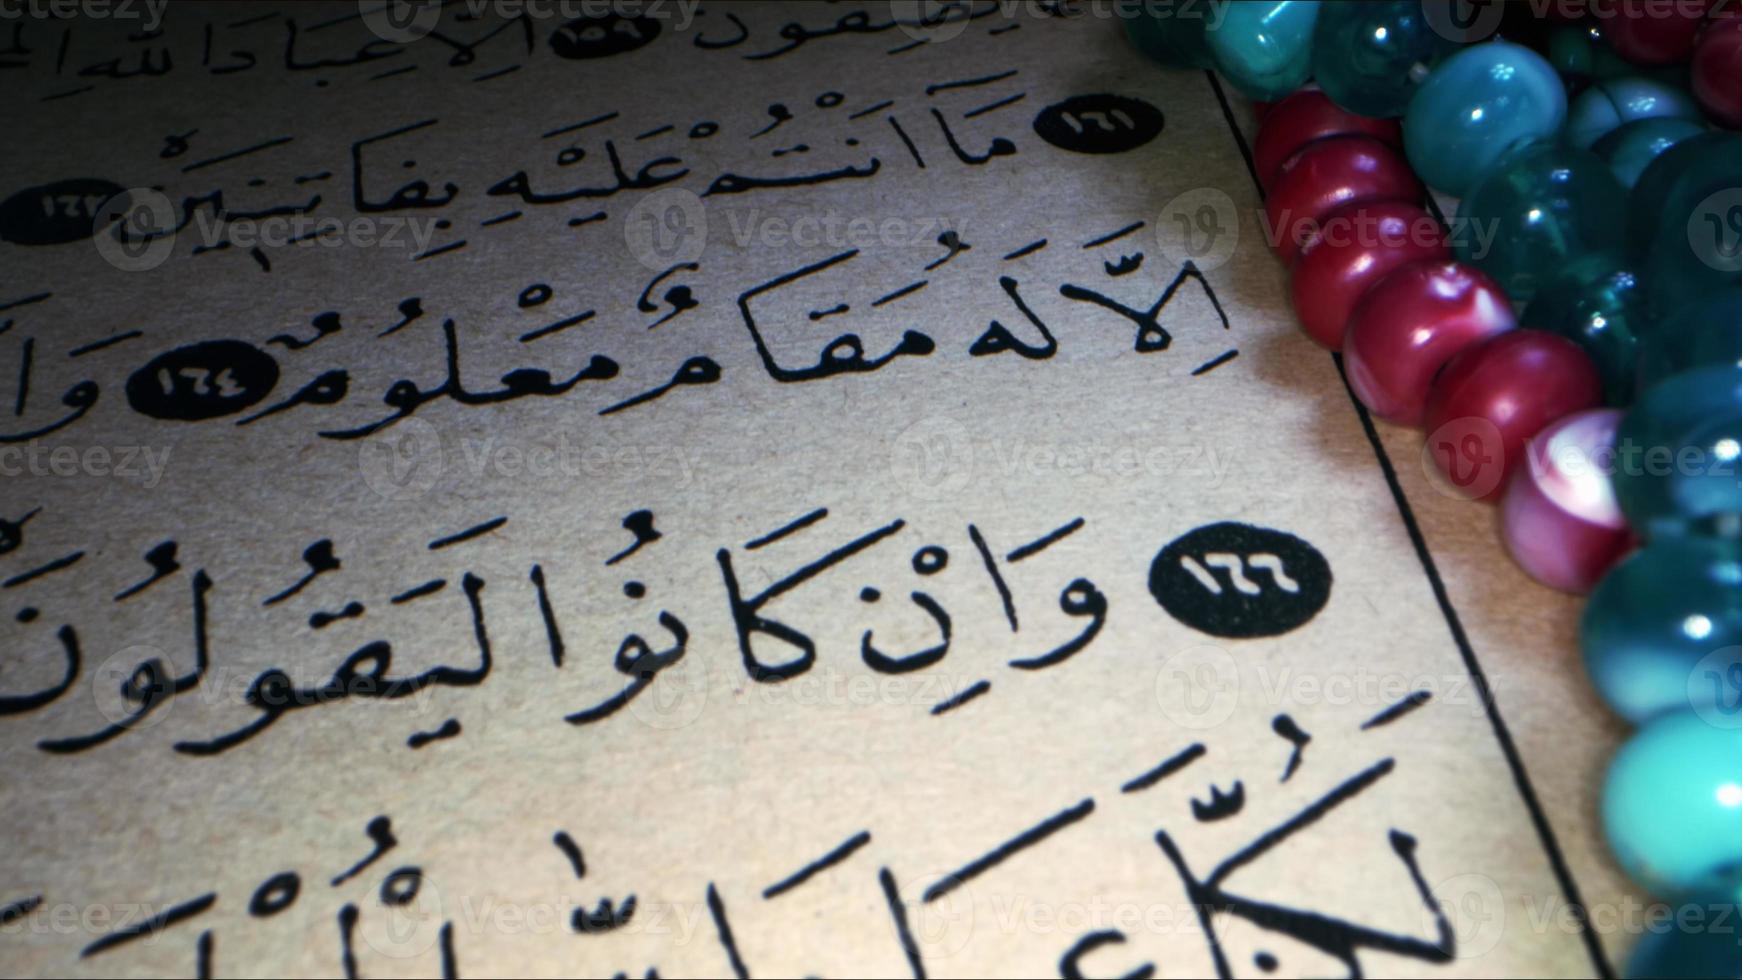 يَصِفُونَ ١٥٩ اِلَّا عِبَادَ اللّٰهِ
١٦١ مَٓا اَنْتُمْ عَلَيْهِ بِفَاتِنٖينَۙ ١٦٢
اِلَّا لَهُ مَقَامٌ مَعْلُومٌۙ ١٦٤
١٦٦ وَاِنْ كَانُوا لَيَقُولُونَۙ
لَكُنَّا عِبَادَ اللّٰهِ الْ
Vecteezy